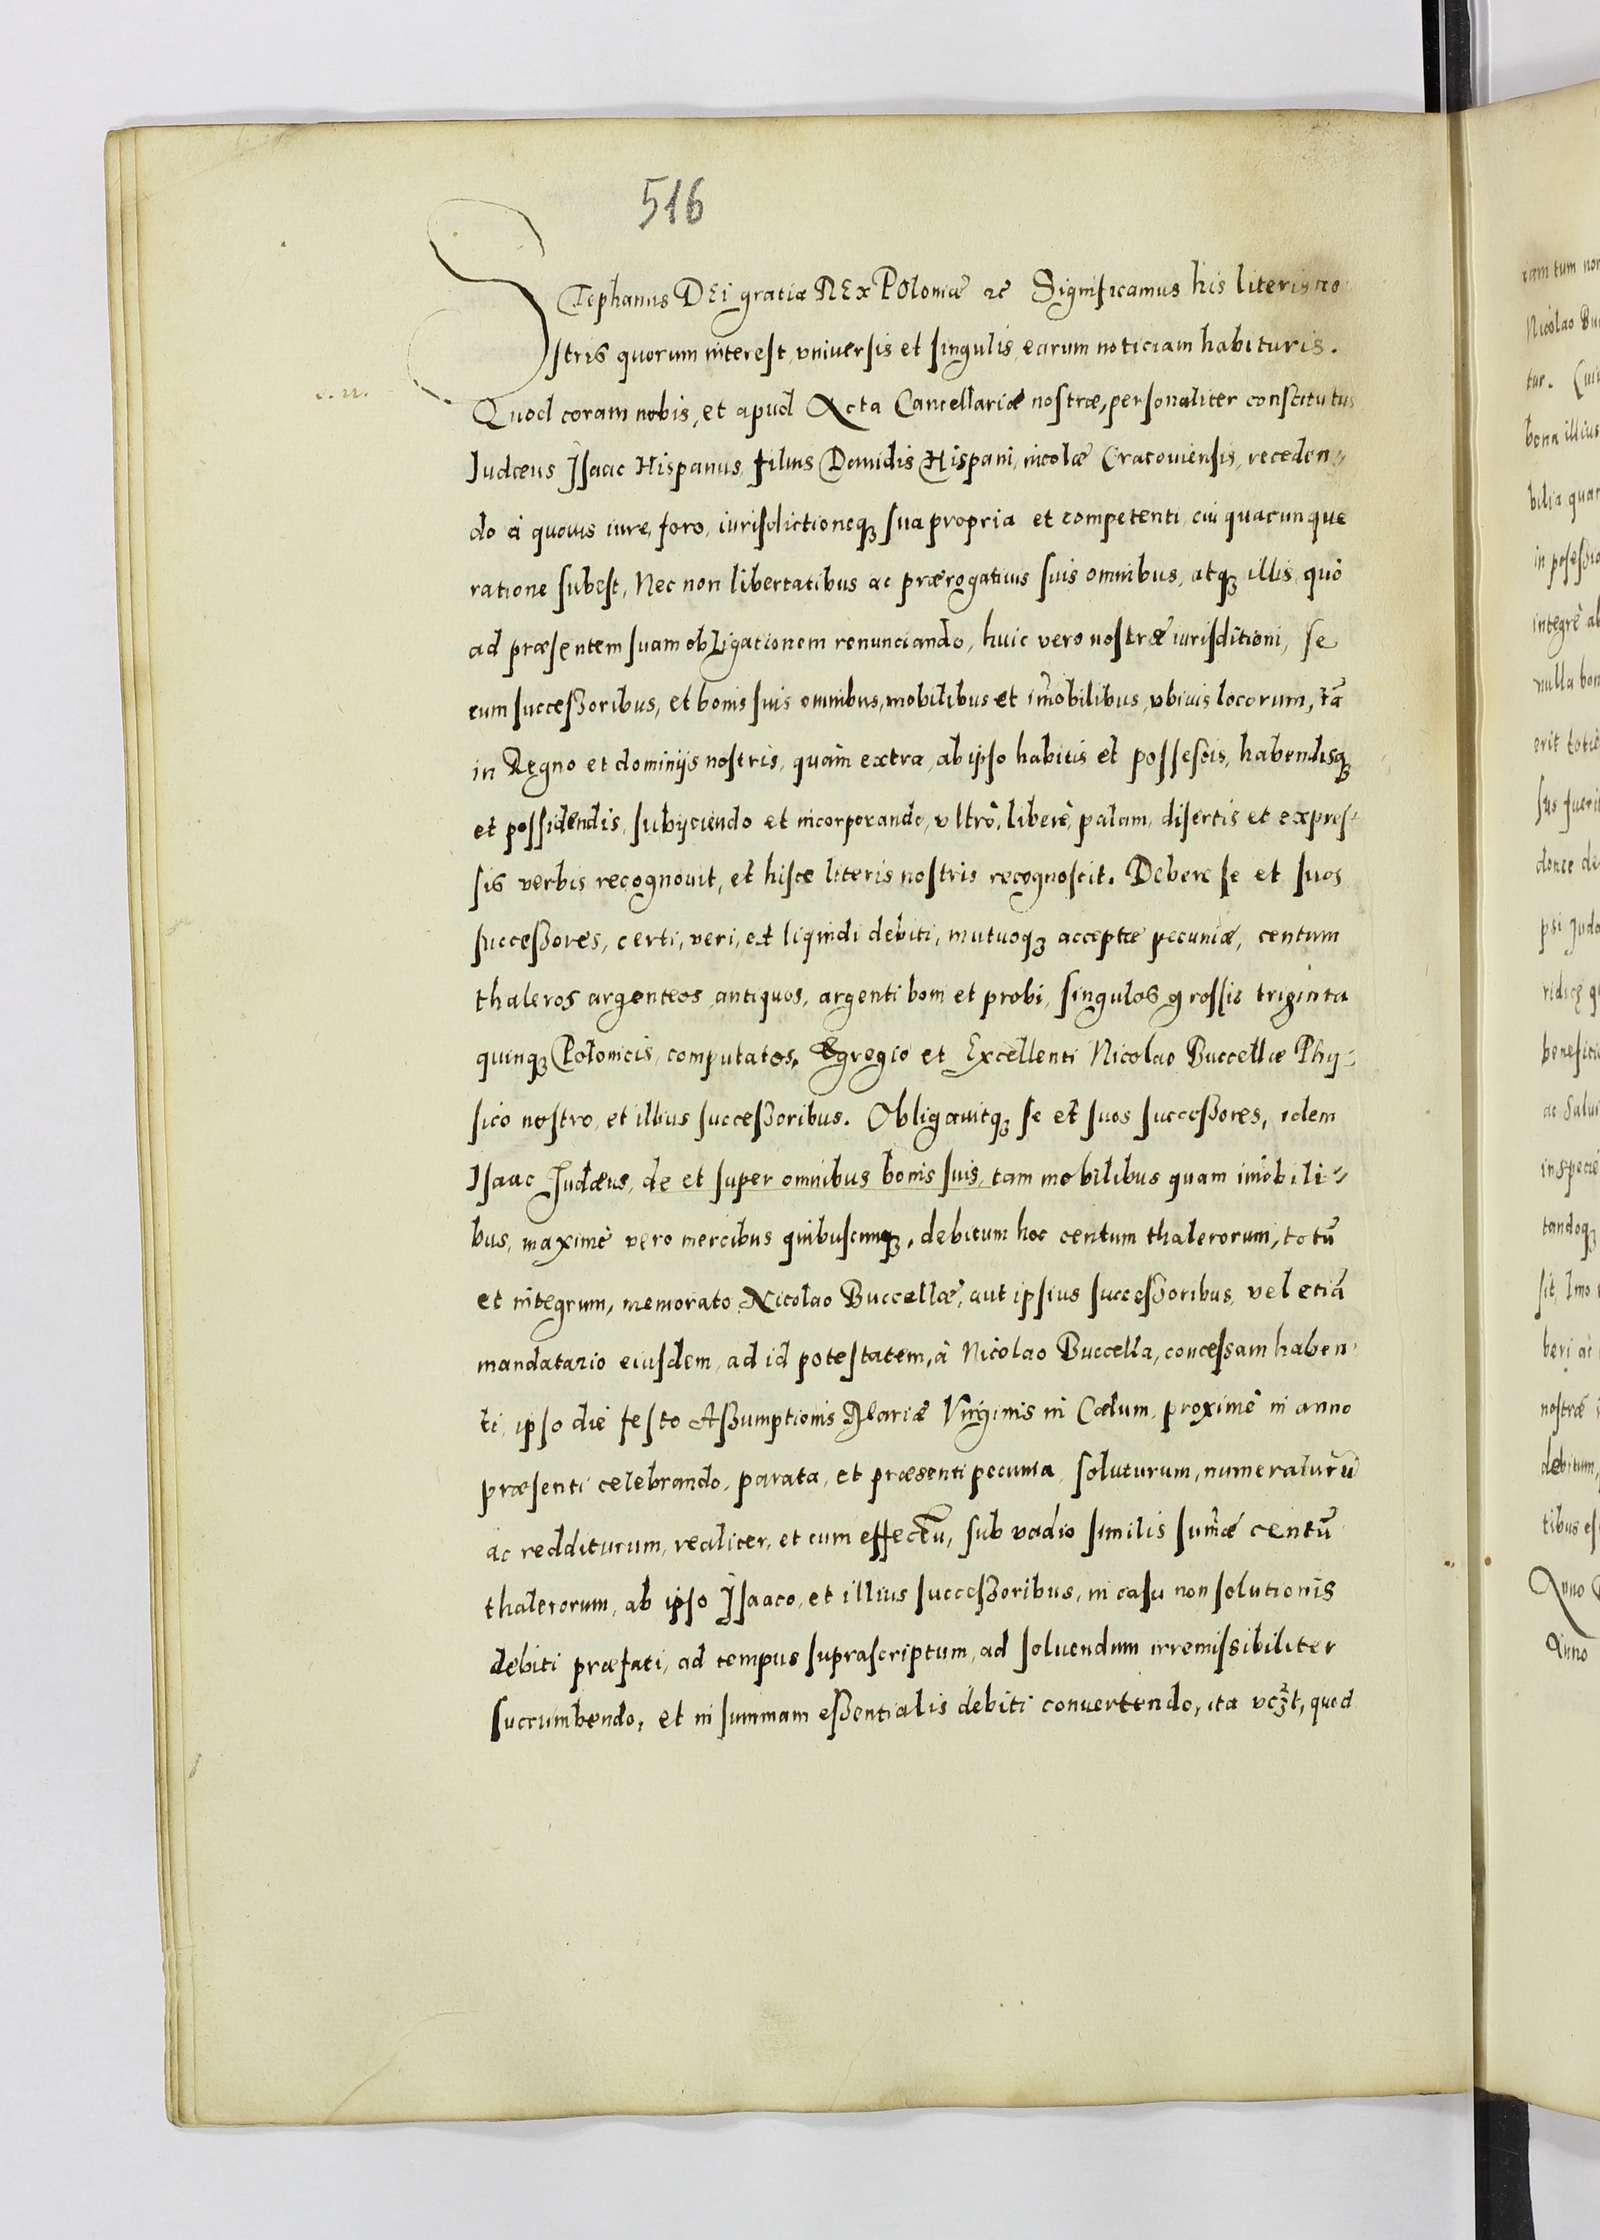 516
Stephanus DEI gratia REx POloniæ ꝛc Significamus his literis no
stris quorum interest, vniuersis et singulis, earum noticiam habituris.
Quod coram nobis, et apud Acta Cancellariæ nostræ, personaliter constitutus
Iudæus Isaac Hispanus, filius Dauidis Hispani, incolæ Cracouiensis, receden„
do à quouis iure, foro, iurisdictioneqꝫ sua propria et competenti, cui quacunque
ratione subest, Nec non libertatibus ac prærogatiuis suis omnibus, atqꝫ illis, quò
ad præsentem suam obligationem renunciando, huic vero nostræ iurisditioni, se
cum successoribus, et bonis suis omnibus, mobilibus et im̃obilibus, vbiuis locorum, tã
in Regno et dominijs nostris, quàm extra, ab ipso habitis et possessis, habendisqꝫ
et possidendis, subijciendo et incorporando, vltrò, liberè, palam, disertis et expres-
sis verbis recognouit, et hisce literis nostris recognoscit. Debere se et suos
successores, certi, veri, et liquidi debiti, mutuoqꝫ acceptæ pecuniæ, centum
thaleros argenteos, antiquos, argenti boni et probi, singulos grossis triginta
quinqꝫ Polonicis, computatos, Egregio et Excellenti Nicolao Buccellæ Phy-
sico nostro, et illius successoribus. Obligauitqꝫ se et suos successores, idem
Isaac Judæus, de et super omnibus bonis suis, tam mobilibus quam im̃obili-
bus, maximè vero mercibus quibuscunqꝫ, debitum hoc centum thalerorum, totũ
et integrum, memorato Nicolao Buccellæ, aut ipsius successoribus, vel etiã
mandatario eiusdem, ad id potestatem, à Nicolao Buccella, concessam haben-
ti, ipso die festo Assumptionis Mariæ Virginis in Cælum, proximè in anno
præsenti celebrando, parata, et præsenti pecunia, soluturum, numeraturũ
ac redditurum, realiter, et cum effectu, sub vadio similis sum̃æ centũ
thalerorum, ab ipso Isaaco, et illius successoribus, in casu non solutionis
debiti præfati, ad tempus suprascriptum, ad soluendum irremissibiliter
succumbendo, et in summam essentialis debiti conuertendo, ita vcꝫt, quod